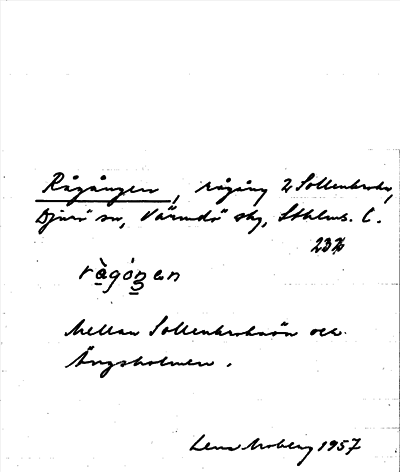 Rågången, rågång 2 Sollenkroka,
Djurö sn, Värmdö skg, Sthlms. l.
rågóŋen
Mellan Sollenkrokaön och
Ängsholmen.
Lena Moberg 1957